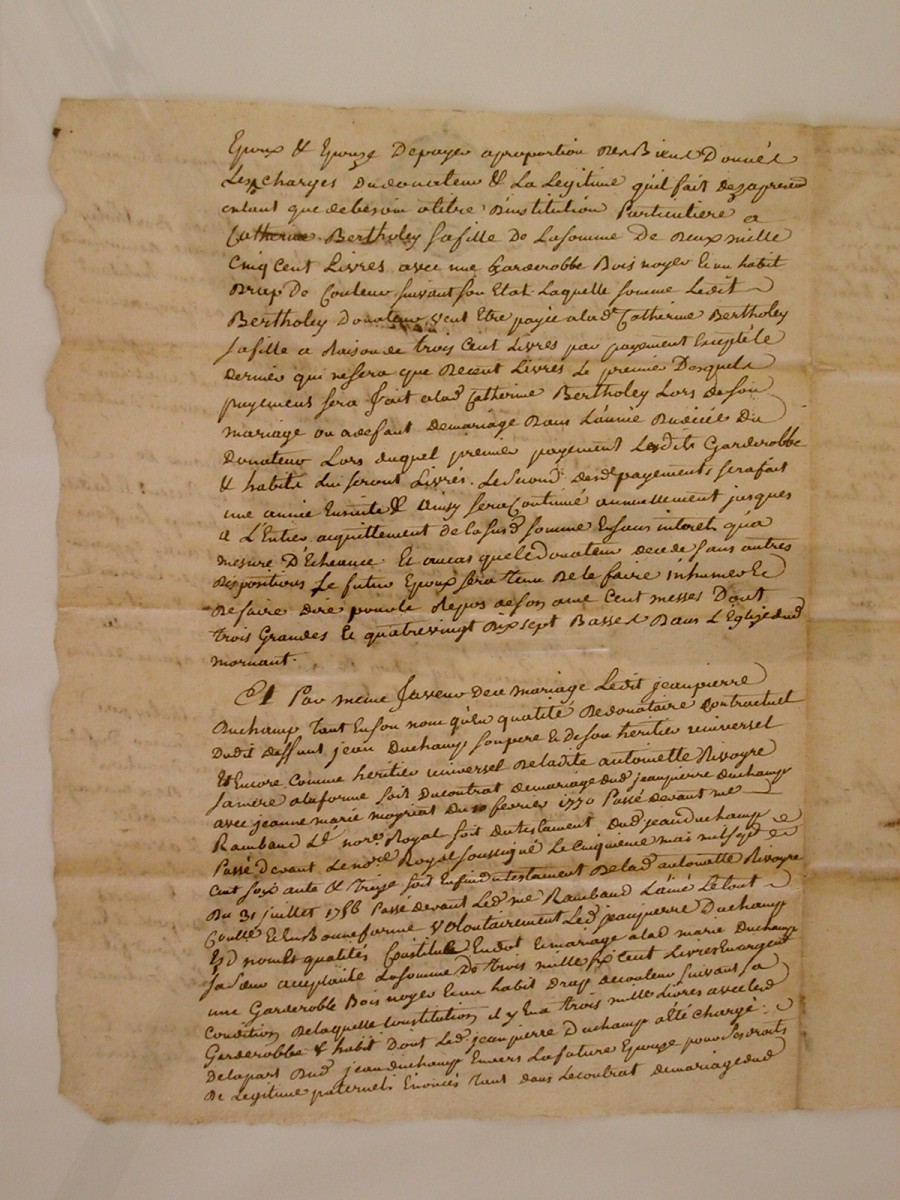 Epoux & Epouze Depayer aproportion Des Biens Donnés
Les Charges Dudonateur & La Legitime qu'il fait dezapresent
entant que debesoin atitre D'institution Particuliere a
Catherine Bertholey safille De Lasomme De Deux mille
Cinq Cent Livres avec une Garderobbe Bois noyer & un habit
Drap De Couleur suivant son Etat Laquelle somme Ledit
Bertholey Donateur veut Etre payée alade Catherine Bertholey
safille a Raison de trois Cent Livres par payement Excepté le
dernier qui nesera que De Cent Livres Le premier Desquels
payemens sera fait alade Catherine Bertholey Lors deson
mariage ou adefaut demariage Dans L'année Du décès Du
Donateur Lors duquel premier payement Lesdits Garderobbe
& habits Lui seront Livrés. Le second desde payements serafait
une année Ensuite & Ainsy sera Continué annuellement jusques
a L'Entier acquittement de la susde somme Ensans interets qu'a
mesure D'Echeance Et aucas queledonateur decede sans autres
dispositions Le futur Epoux sera tenu De le faire inhumer &
De faire dire pour le Repos deson ame Cent messes Dont
trois Grandes & quatrevingt dix sept Basses Dans L'Eglize dud
mornant.
Et Par meme faveur de ce mariage Ledit jeanpierre
Duchamp tant Enson nom qu'En qualité De donataire Contractuel
Dudit deffunt jean Duchamp sonpere & de son heritier universel
& Encore comme heritier universel De ladite antoinette Rivoyre
samere alaforme soit ducontrat demariage dud jeanpierre duchamp
avec jeanne marie Du 10 fevrier 1770 Passé devant me
Rambaud L'é nore Royal soit du testament Dud jean duchamp
Passé devant Lenore Royal soussigné Le Cinquieme mai mil sept
Cent soixante & treize soit Enfin dutestament Delade antoinette Rivoyre
Du 31 juillet 1786 Passé devant Led me Rambaud L'ainé Le tout
Controllé & En Bonne forme volontairement Led jeanpierre Duchamp
Esd nom & qualités Constitue En dot & mariage alad marie Duchamp
sasœur acceptante Lasomme De trois mille six Cent Livres En argent
une Garderobbe Bois noyer & un habit drap de couleur suivant sa
Condition De laquelle Constitution il y En a trois mille Livres avec lesd
Garderobbe & habit Dont Led jeanpierre Duchamp a Eté chargé
De la part Dud jean duchamp Envers La future Epouze pour ses droits
De Legitime paternels Enoncés tant dans Le contrat demariage dud